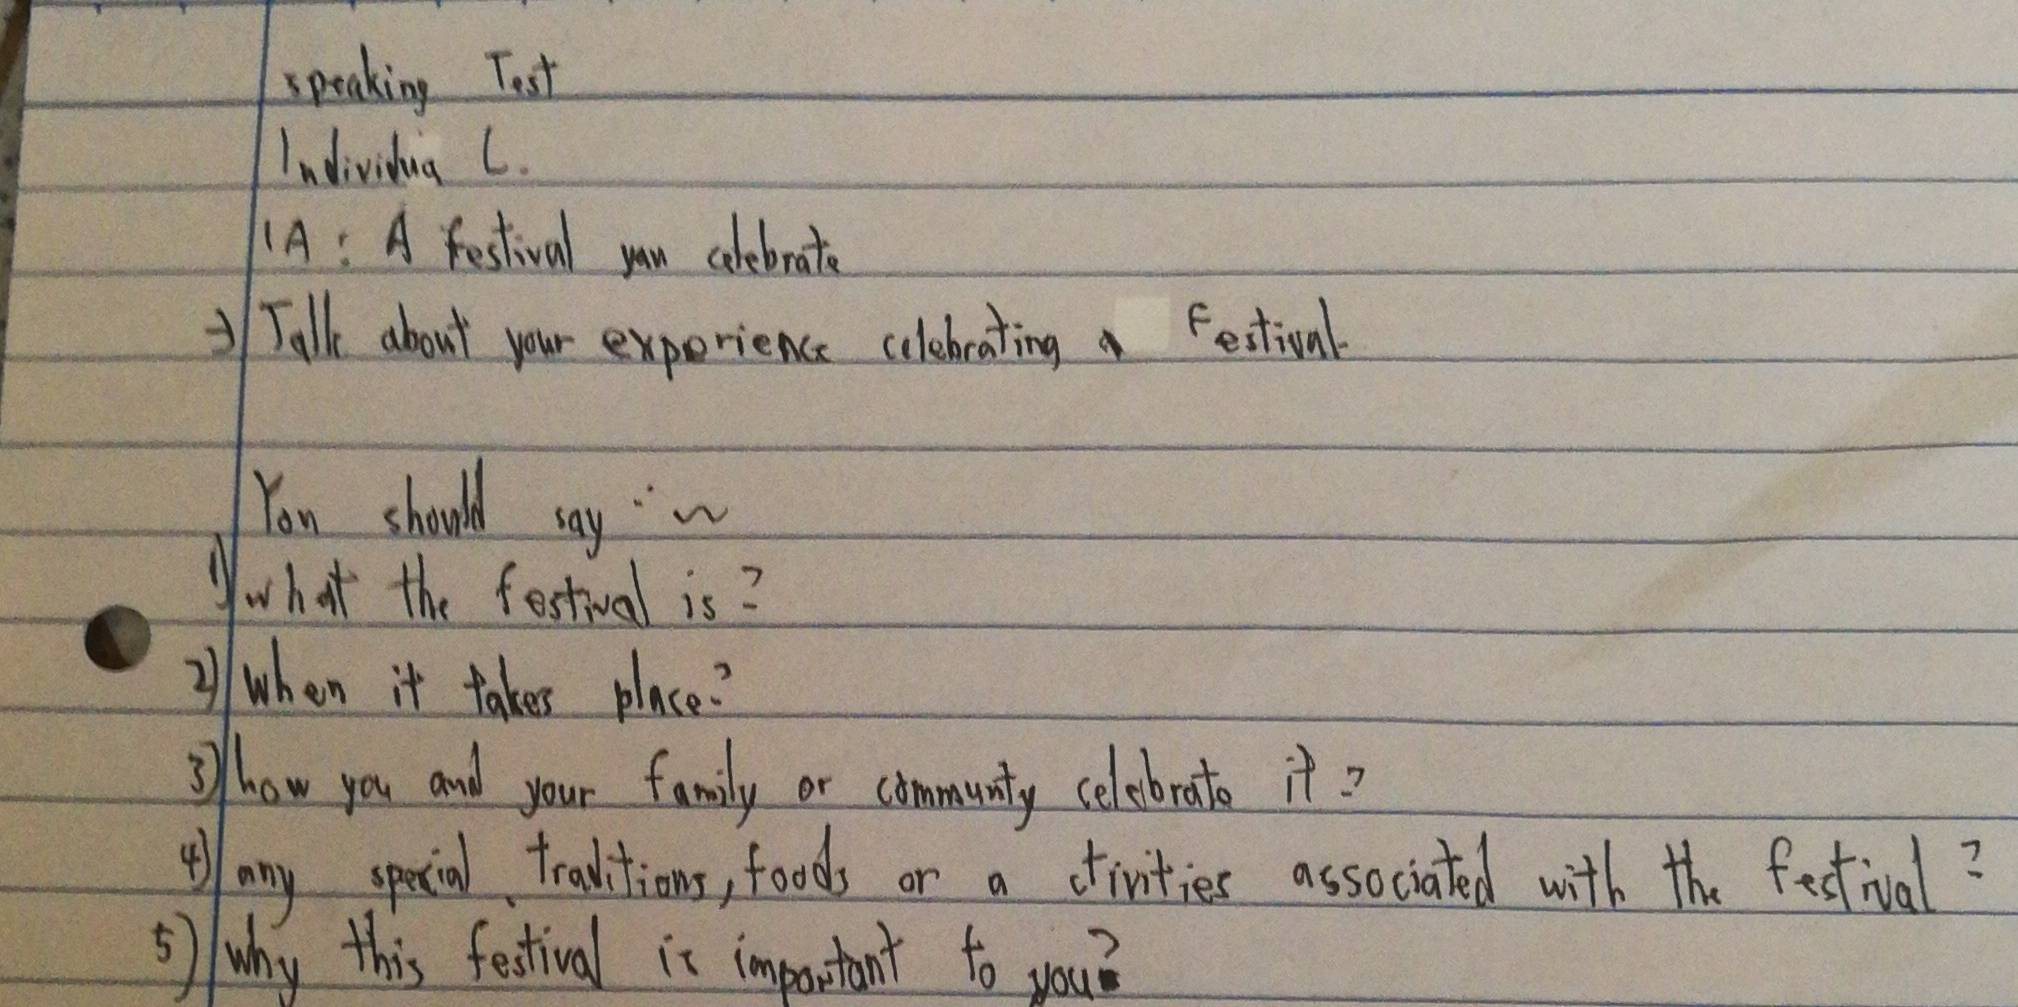 speaking Test
Individual.
1A : A festival you celebrate
→ Talk about your experience celebrating a Festival.
You should say :~
1) what the festival is?
2) when it takes place?
3) how you and your family or communty celebrate it?
4) any special traditions, foods or activities associated with the festival?
5) why this festival is important to you?